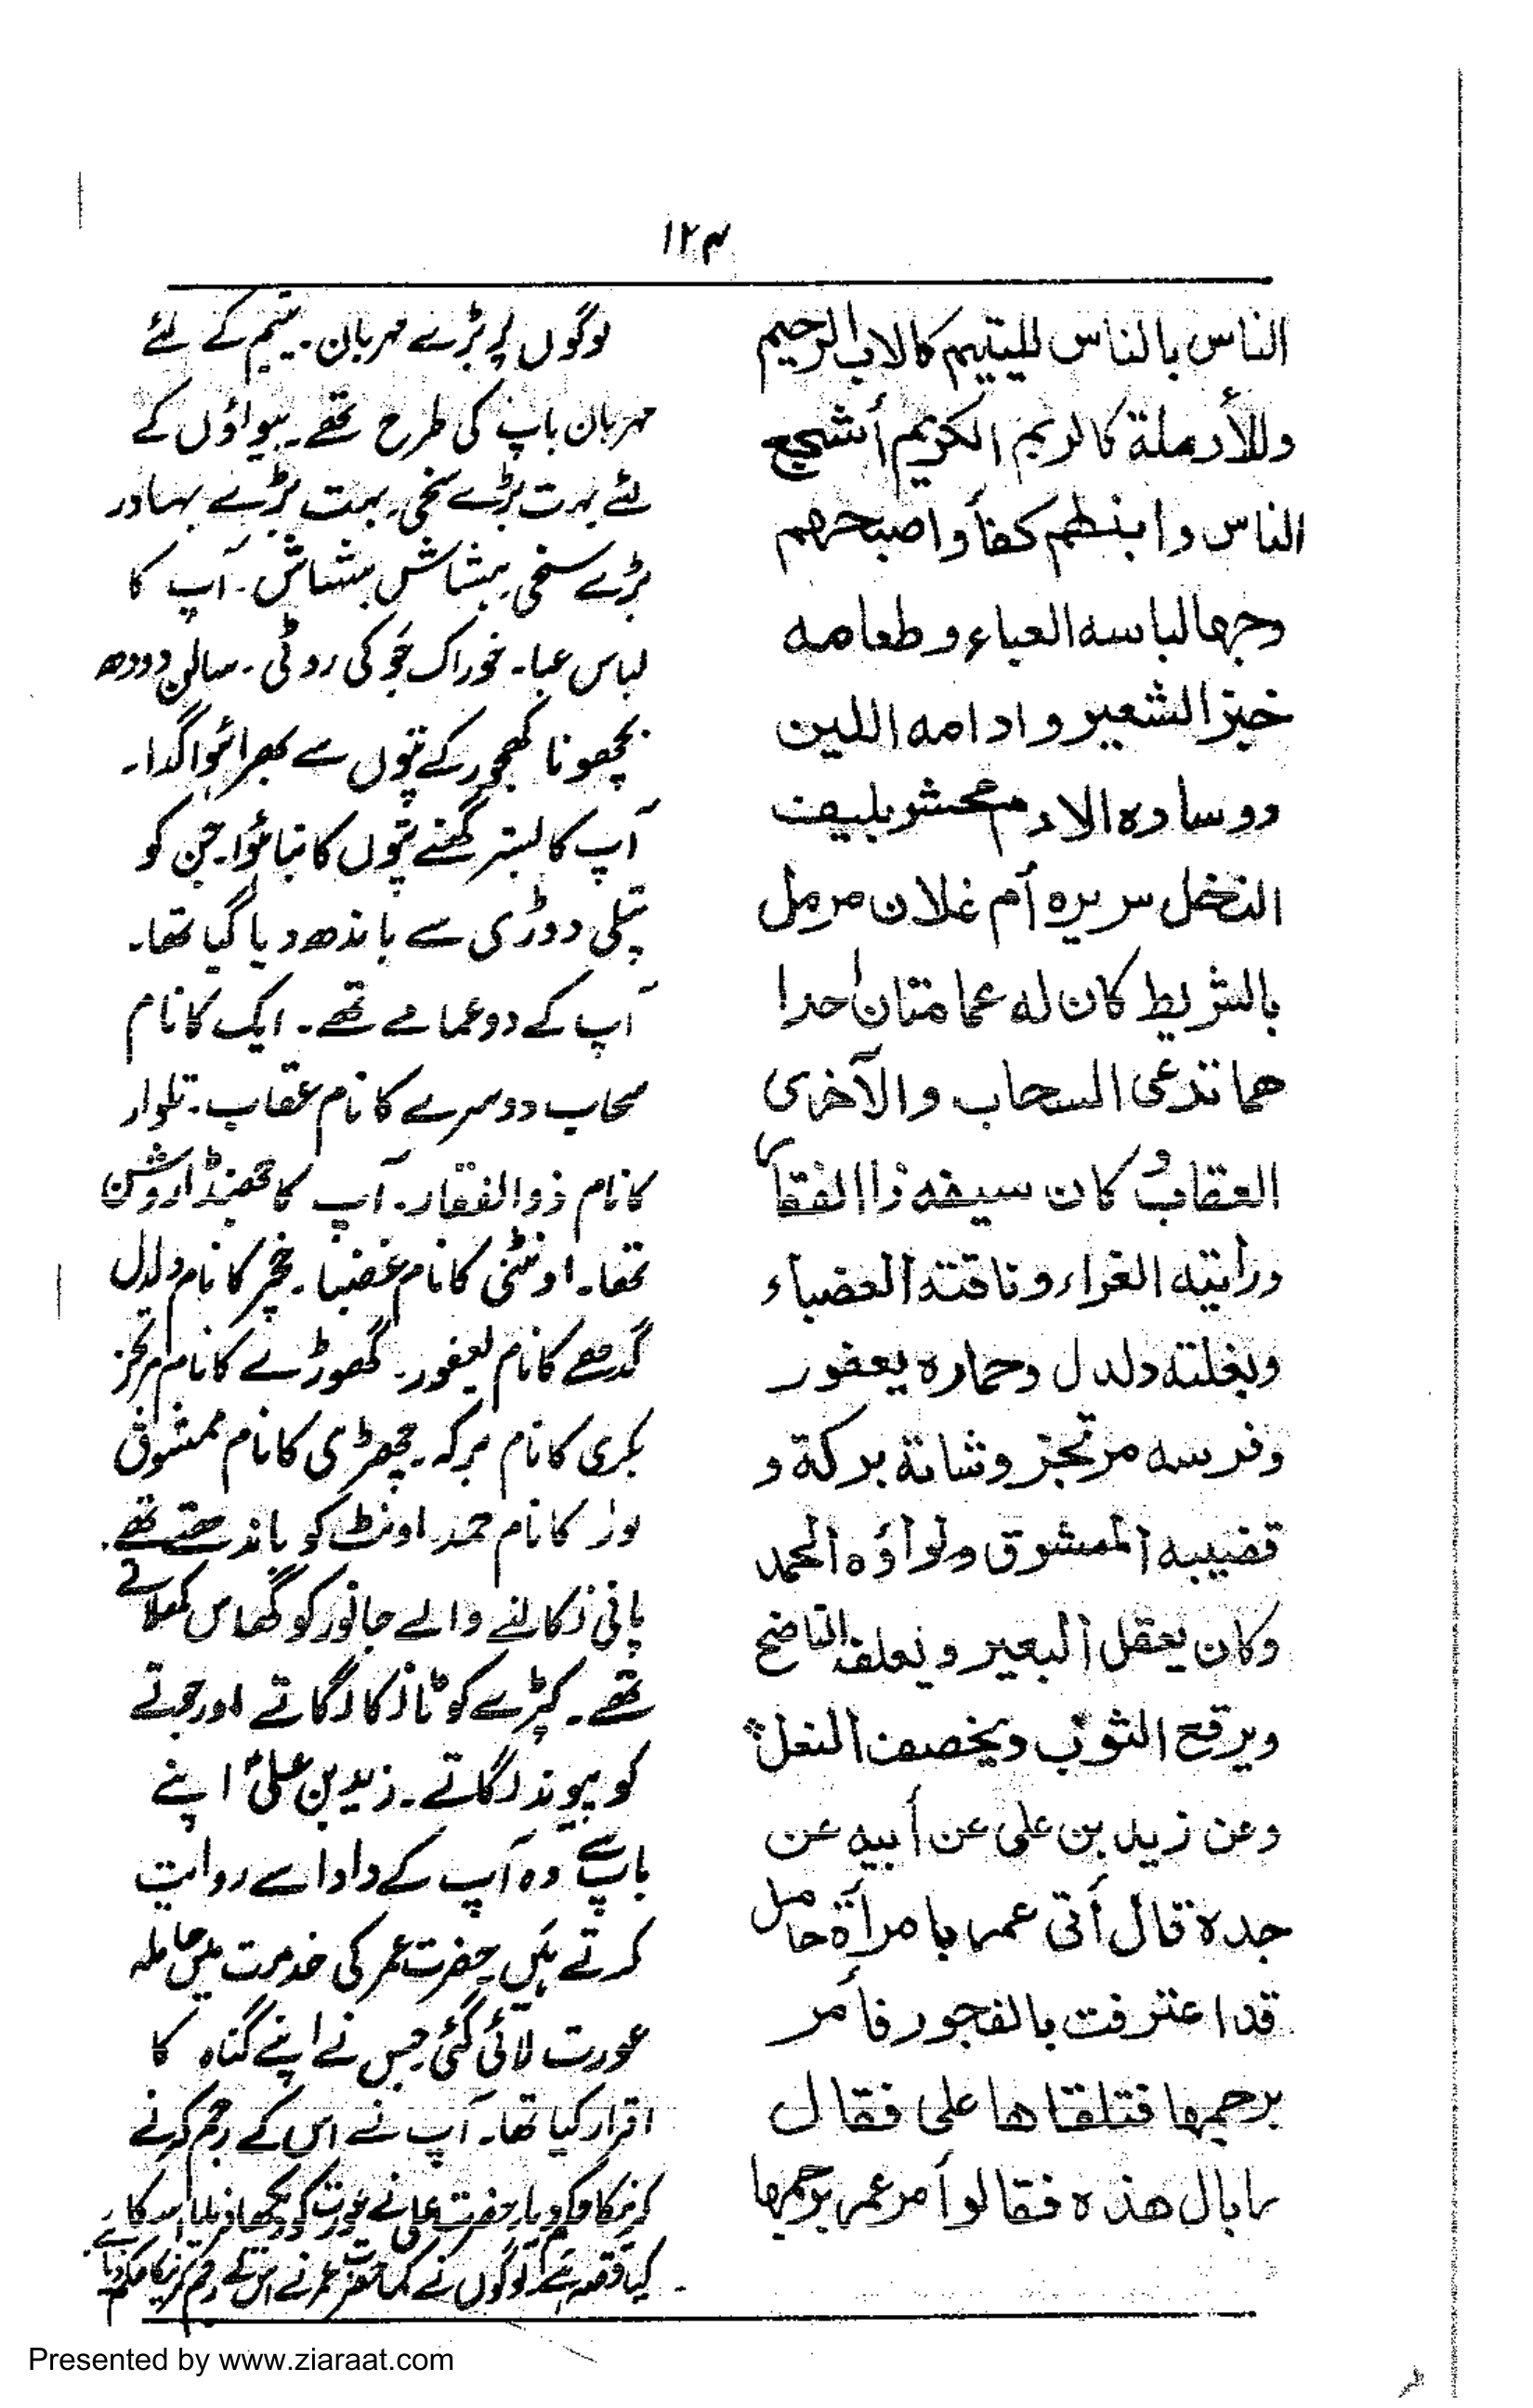 ۱۲۴
الناس بالناس لليتيم كالاب الرحيم
وللأرملة كالريم الكريم أشجع
الناس وابنطهم كفأ واصبحهم
وجها لباسه العباء وطعامه
خبز الشعير وادامه اللبن
ووساده الادم محشو بليف
النخل سريره أم غلان مرمل
بالشريط كان له عمامتان احدا
هما تدعى السحاب والآخرى
العقاب وكان سيفه ذا الفقار
ورأيته الغراء وناقته العضباء
وبغلته دلدل وحماره يعفور
وفرسه مرتجز وشاته بركة و
قضيبه الممشوق ولواؤه الحمد
وكان يعقل البعير ويعلف الناضح
ويرقع الثوب ويخصف النعل
وعن زيد بن على عن أبيه عن
جده قال أتى عمر بامرأة حامل
قد اعترفت بالفجور فأمر
برجمها فتلقاها على فقال
ما بال هذه فقالوا أمر عمر برجمها
لوگوں پر بڑے مہربان۔ یتیم کے لئے
مہربان باپ کی طرح تھے۔ بیواؤں کے
لئے بہت بڑے سخی، بہت بڑے بہادر
بڑے سخی ہشاش بشاش۔ آپ کا
لباس عبا۔ خوراک جَو کی روٹی۔ سالن دودھ
بچھونا کھجور کے پتوں سے بھرا ہُوا گدا۔
آپ کا بستر گھنے پتوں کا بنا ہُوا۔ جن کو
پتلی دوڑی سے باندھ دیا گیا تھا۔
آپ کے دو عمامے تھے۔ ایک کا نام
سحاب دوسرے کا نام عقاب۔ تلوار
کا نام ذوالفقار۔ آپ کا جھنڈا روشن
تھا۔ اونٹنی کا نام غضبا۔ خچر کا نام دلدل
گدھے کا نام یعفور۔ گھوڑے کا نام مرتجز
بکری کا نام برکہ۔ چھڑی کا نام ممشوق
لوا کا نام حمد۔ اونٹ کو باندھتے تھے۔
پانی نکالنے والے جانور کو گھاس کھلاتے
تھے۔ کپڑے کو ٹانکا لگاتے اور جوتے
کو پیوند لگاتے۔ زید بن علیؑ اپنے
باپ سے وہ آپ کے دادا سے روایت
کرتے ہیں۔ حضرت عمر کی خدمت میں حاملہ
عورت لائی گئی جس نے اپنے گناہ کا
اقرار کیا تھا۔ آپ نے اس کے رجم کرنے
کرنیکا حکم دیا۔ حضرت علی نے عورت کو دیکھا فرمایا اس کا
کیا قصہ ہے؟ لوگوں نے کہا حضرت عمر نے اس کے رجم کرنیکا حکم دیا ہے۔
Presented by www.ziaraat.com